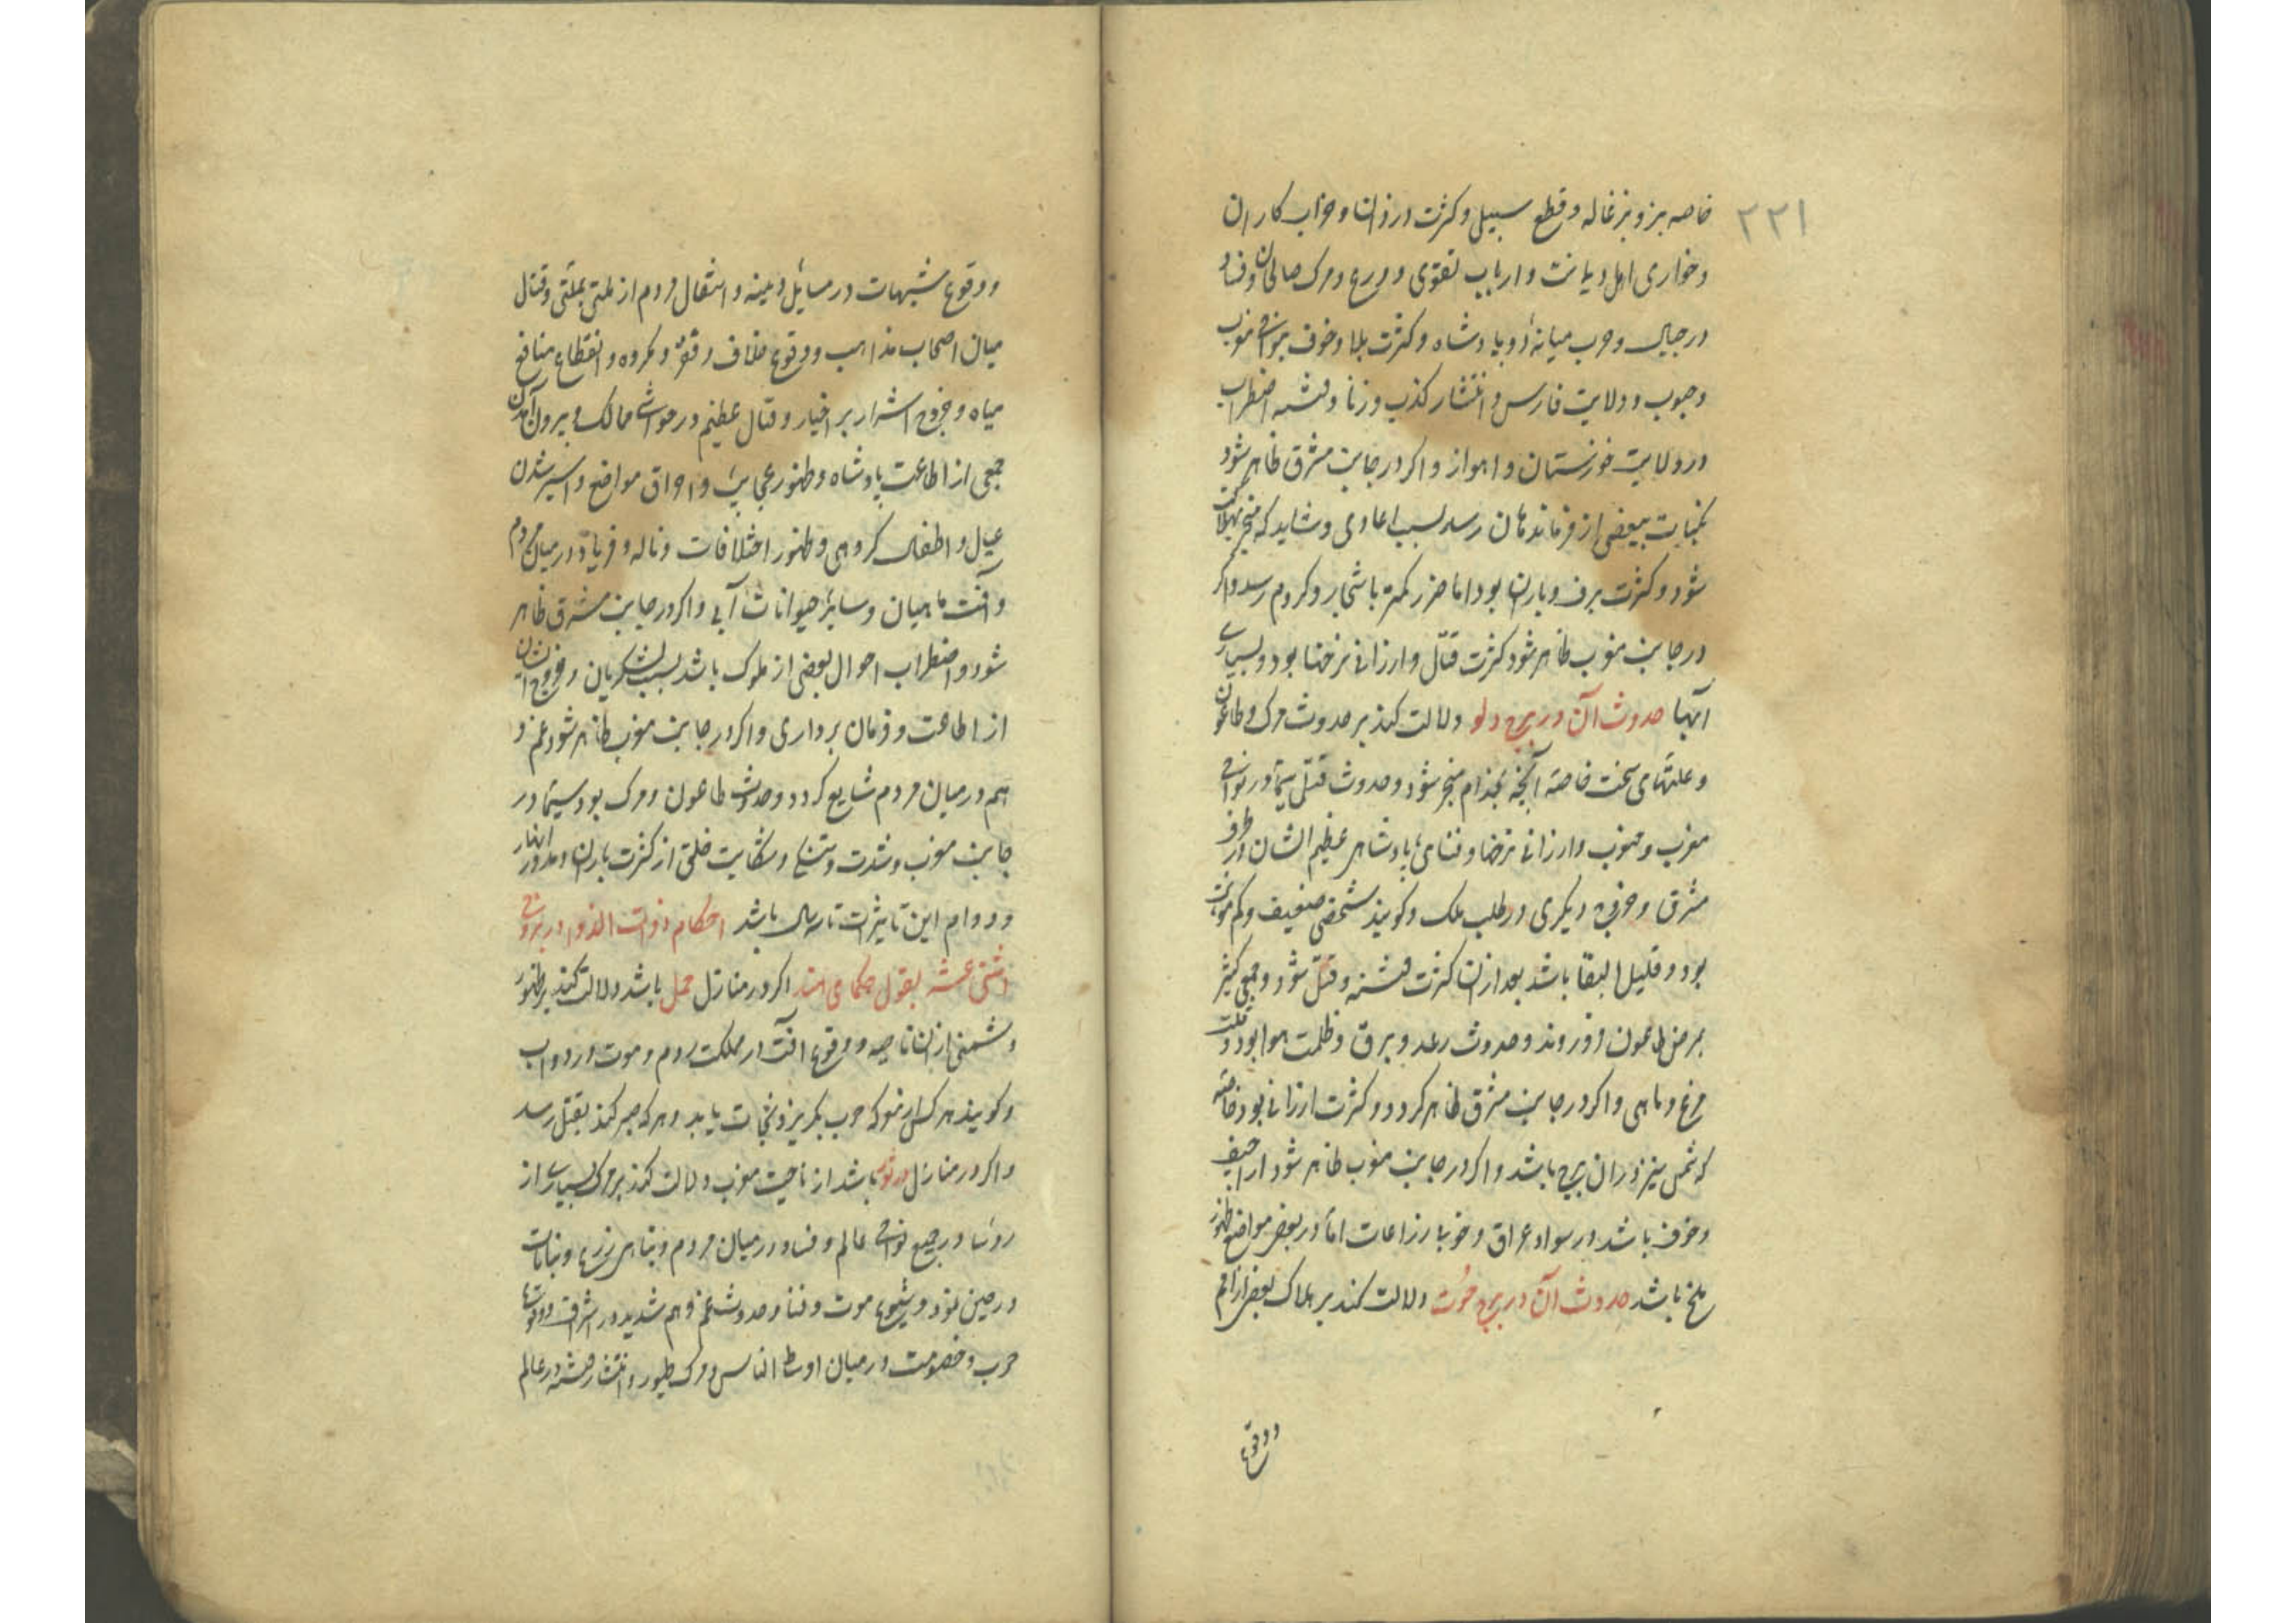 ۲۲۱
خاصه بز و بزغاله و قطع سبیل و کثرت دزدان و خراب کاران
و خواری اهل دیانت و ارباب تقوی و ورع و مرک صالحان و فساد
در جبال و حرب میانهٔ دو پادشاه و کثرت بلا و خوف در نواحی مغرب
و جنوب و ولایت فارس و انتشار کذب و زنا و فتنه و اضطراب
در ولایت خوزستان و اهواز و اکر در جانب مشرق ظاهر شود
نکبات ببعضی از فرماندهان رسد بسبب اعادی و شاید که منجر بهلاکت
شود و کثرت برف و باران بود اما ضرر کمتر باشجار و کروم رسد و اکر
در جانب مغرب ظاهر شود کثرت قتال و ارزانی نرخها بود و بسیاری
آبها حدوث آن در برج دلو دلالت کند بر حدوث مرک و طاعون
و علتهای سخت خاصه آنچه بجذام منجر شود و حدوث قتل سیما در نواحی
مغرب و جنوب و ارزانی نرخها و فنای پادشاهی عظیم الشان در طرف
مشرق و خروج دیکری در طلب ملک و کویند شخصی ضعیف و کم مونت
بود و قلیل البقا باشد بعد از آن کثرت فتنه و قتل شود و جمعی کثیر
بمرض طاعون فرو روند و حدوث رعد و برق و ظلمت هوا بود و قلت
مرغ و ماهی و اکر در جانب مشرق ظاهر کردد و کثرت ارزانی بود خاصه
که شمس نیز در آن برج باشد و اکر در جانب مغرب ظاهر شود اراجیف
و خوف باشد در سواد عراق و خوبی زراعات اما در بعضی مواضع ظهور
ملخ باشد حدوث آن در برج حوت دلالت کند بر هلاک بعضی از امم
و وقوع
و وقوع شبهات در مسائل دینیه و انتقال مردم از ملتی بملتی و قتال
میان اصحاب مذاهب و وقوع خلاف و مکروه و انقطاع منافع
میاه و خروج اشرار بر اخیار و قتال عظیم در حواشی ممالک و بیرون آمدن
جمعی از اطاعت پادشاه و ظهور عجایب و احراق مواضع و اسیر شدن
عیال و اطفال کروهی و ظهور اختلافات و ناله و فریاد در میان مردم
و آفت ماهیان و سایر حیوانات آبی و اکر در جانب مشرق ظاهر
شود و اضطراب احوال بعضی از ملوک باشد بسبب لشکریان و خروج ایشان
از اطاعت و فرمان برداری و اکر در جانب مغرب ظاهر شود غم و
هم در میان مردم شایع کردد و حدوث طاعون و مرک بود سیما در
جانب مغرب و شدت و شکایت خلق از کثرت باران و مدود انهار
و دوام این تاثیرات تا سالی باشد احکام ذوات الذوایب در بروج
اثنی عشر بقول حکمای هند اکر در منازل حمل باشد دلالت کند بر ظهور
دشمنی از آن ناحیه و وقوع آفت در مملکت روم و موت در دواب
و کویند هر کس از معرکه حرب بکریزد نجات یابد و هر که صبر کند بقتل رسد
و اکر در منازل ثور باشد از ناحیت مغرب دلالت کند بر مرک بسیاری از
روسا در جمیع نواحی عالم و فساد در میان مردم و تباهی زرع و نباتات
در حین نمو و شیوع موت و فنا و حدوث غم و هم شدید در اشراف و وقوع
حرب و خصومت در میان اوساط الناس و مرک طیور و انتشار فتنه در عالم